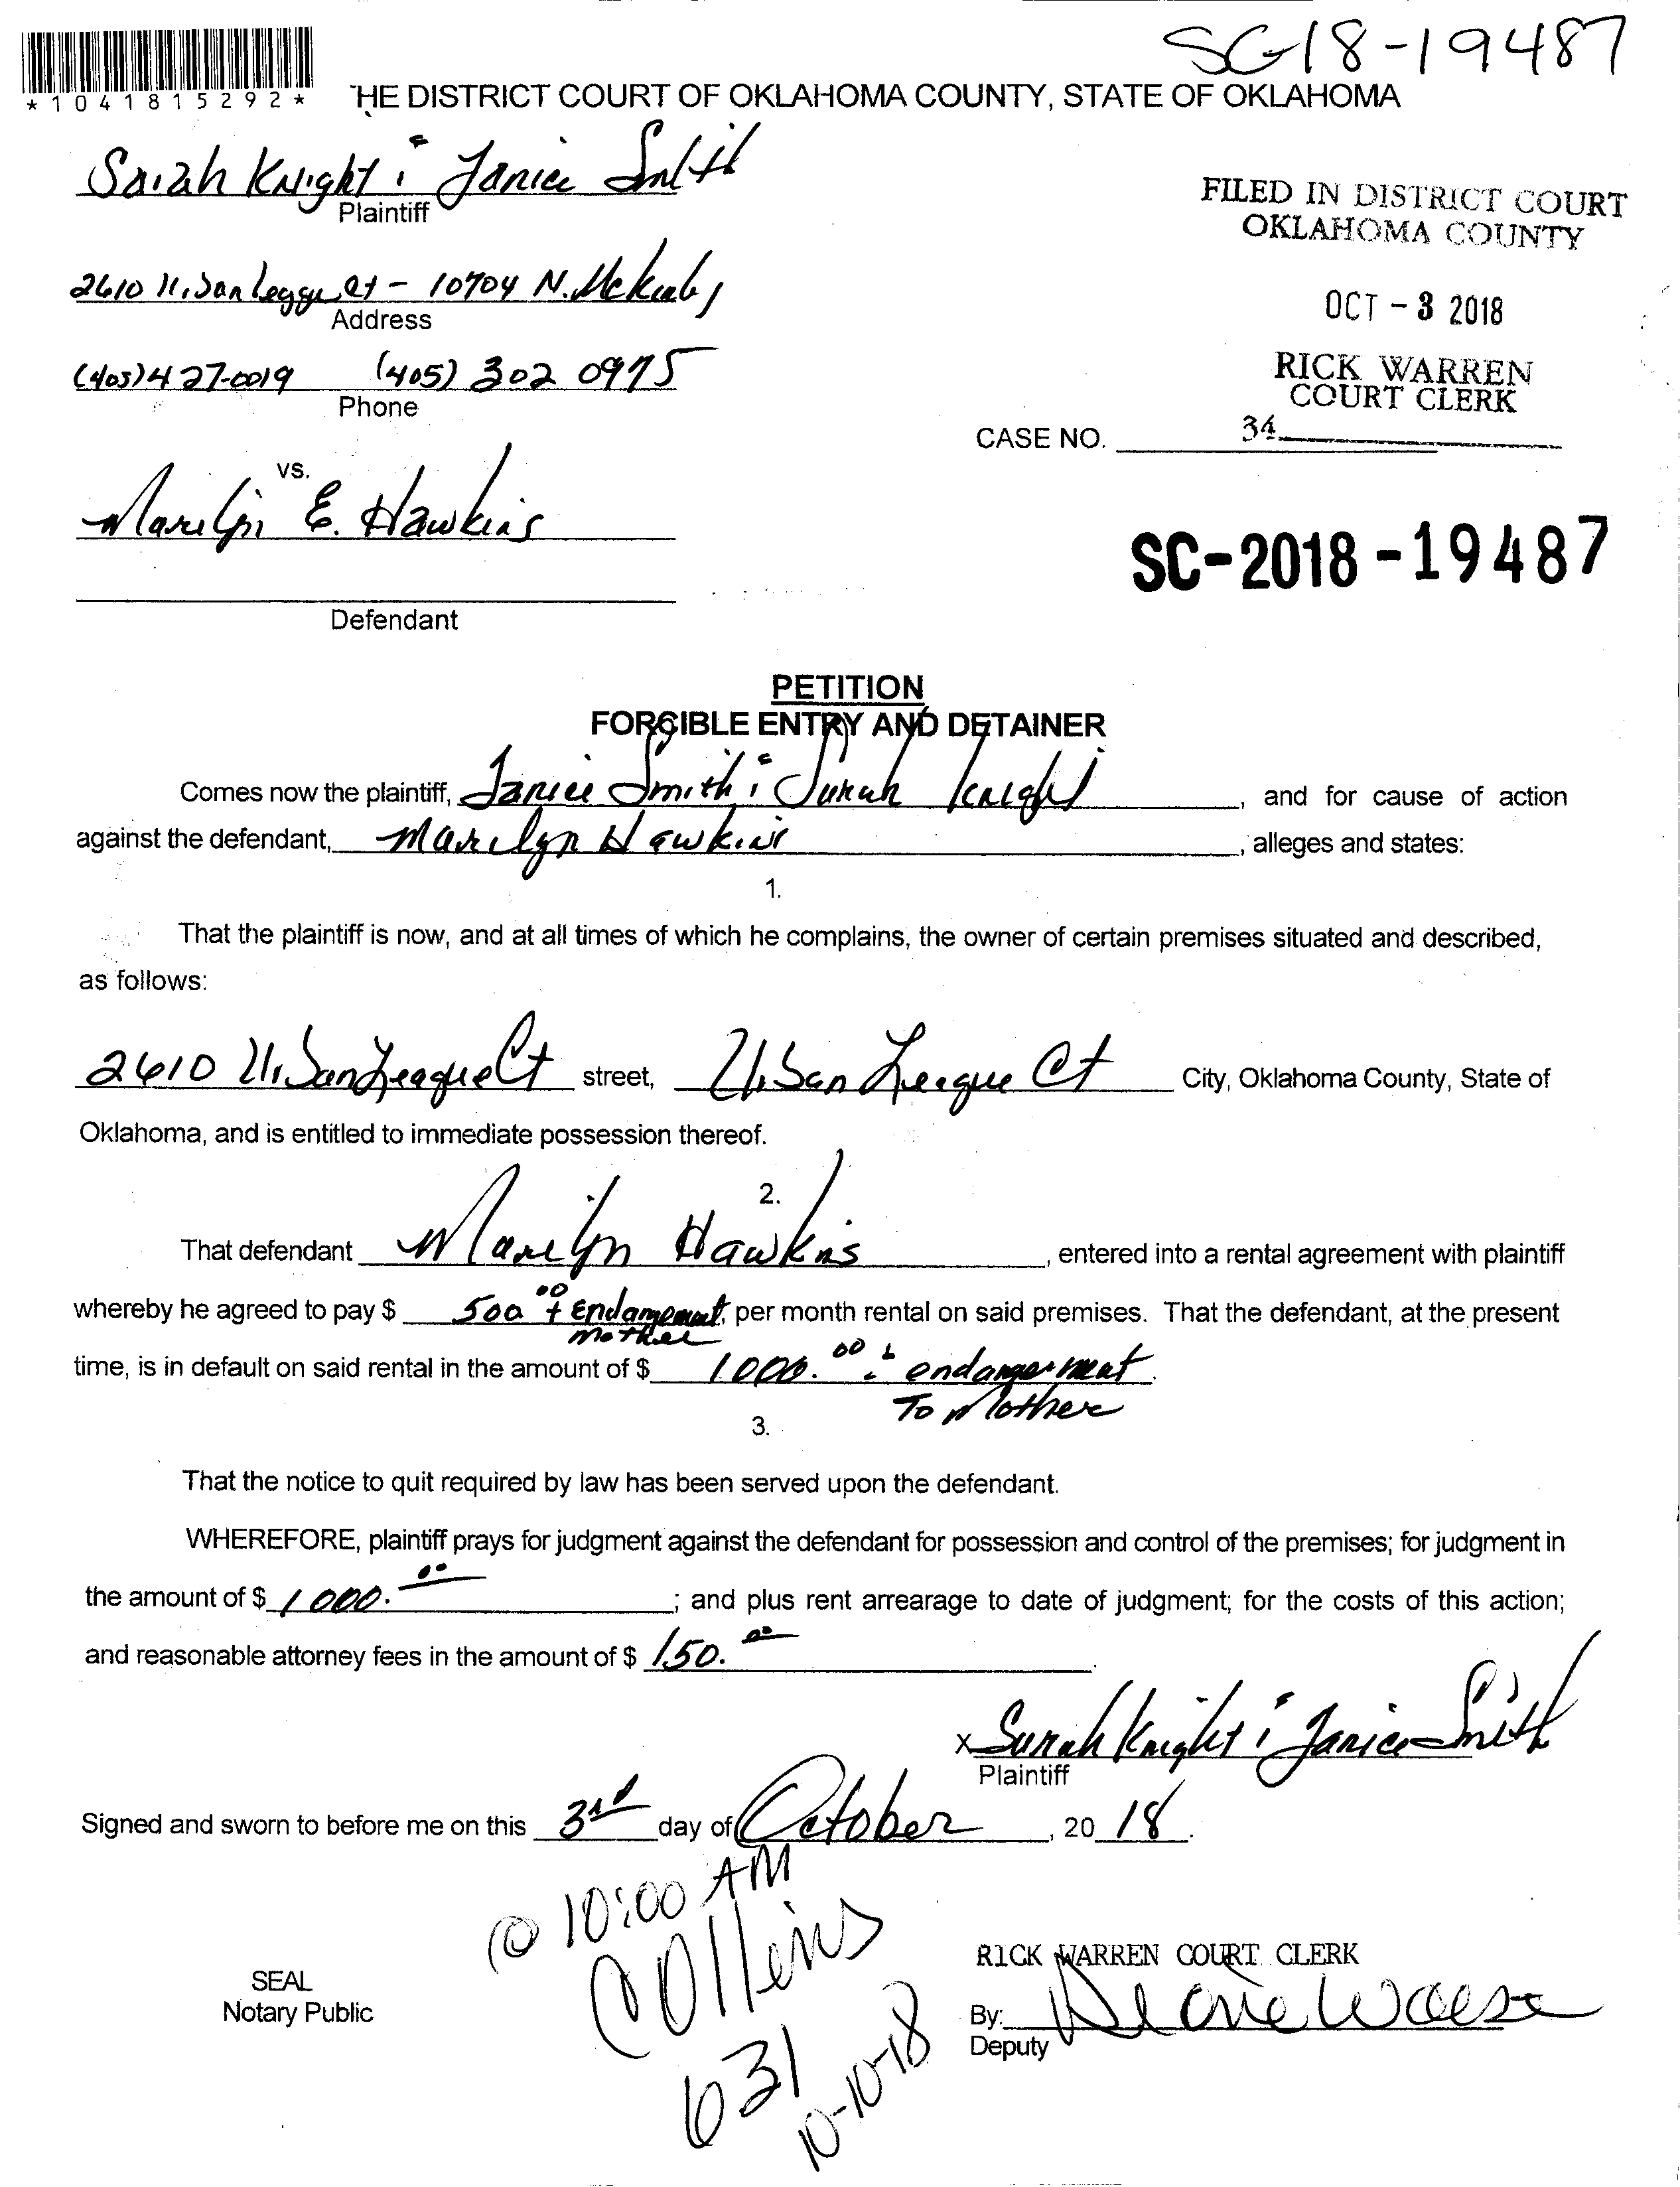 SC-18-19487
*1041815292*
HE DISTRICT COURT OF OKLAHOMA COUNTY, STATE OF OKLAHOMA
Sarah Knight & Janice Smith
Plaintiff
FILED IN DISTRICT COURT
OKLAHOMA COUNTY
2610 N.
Ct - 10704 N. McKinley
Address
OCT - 3 2018
(405) 427-0019 (405) 302 0975
Phone
RICK WARREN
COURT CLERK
CASE NO. 34
vs.
Marilyn E. Hawkins
SC-2018-19487
Defendant
PETITION
FORCIBLE ENTRY AND DETAINER
Comes now the plaintiff, Janice Smith & Sarah Knight, and for cause of action
against the defendant, Marilyn Hawkins, alleges and states:
1.
That the plaintiff is now, and at all times of which he complains, the owner of certain premises situated and described,
as follows:
2610 San League Ct street, San League Ct City, Oklahoma County, State of
Oklahoma, and is entitled to immediate possession thereof.
2.
That defendant Marilyn Hawkins, entered into a rental agreement with plaintiff
whereby he agreed to pay $ 500 00 + Endangement, per month rental on said premises. That the defendant, at the present
mother
time, is in default on said rental in the amount of $ 1000.00 & endangerment.
To Mother
3.
That the notice to quit required by law has been served upon the defendant.
WHEREFORE, plaintiff prays for judgment against the defendant for possession and control of the premises; for judgment in
the amount of $ 1000.00; and plus rent arrearage to date of judgment; for the costs of this action;
and reasonable attorney fees in the amount of $ 150.00.
x Sarah Knight & Janice Smith
Plaintiff
Signed and sworn to before me on this 3rd day of October, 20 18.
@ 10:00 AM
Collins
631
10-10-18
SEAL
Notary Public
RICK WARREN COURT CLERK
By:
Deputy